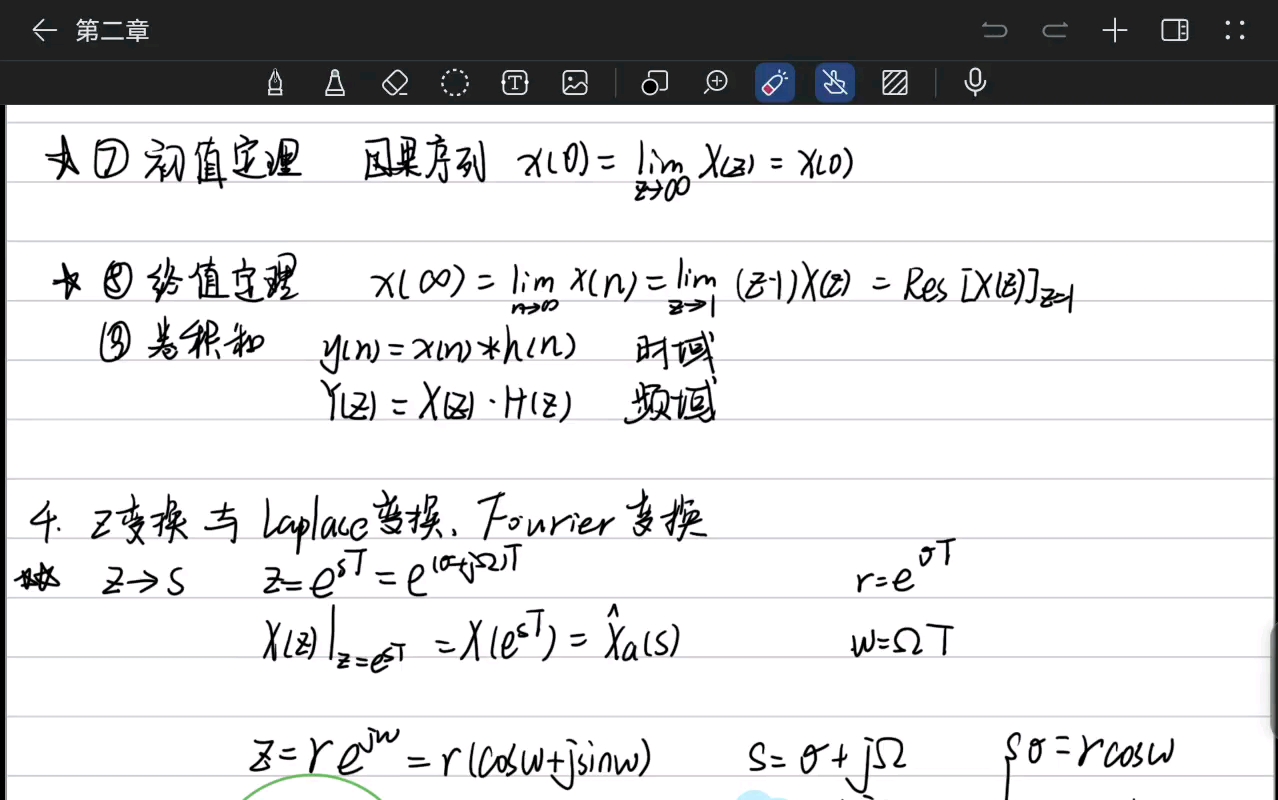 第二章
★ ⑦ 初值定理 因果序列 x(0) = lim_{z→∞} X(z) = x(0)
★ ⑧ 终值定理 x(∞) = lim_{n→∞} x(n) = lim_{z→1} (z-1)X(z) = Res [X(z)]_{z=1}
⑨ 卷积和 y(n) = x(n) * h(n) 时域
Y(z) = X(z) · H(z) 频域
4. Z变换与Laplace变换、Fourier变换
★★ z → s z = e^{sT} = e^{(σ+jΩ)T} r = e^{σT}
X(z)|_{z=e^{sT}} = X(e^{sT}) = X̂a(s) w = ΩT
z = re^{jw} = r(cosw + jsinw) s = σ + jΩ { σ = rcosw